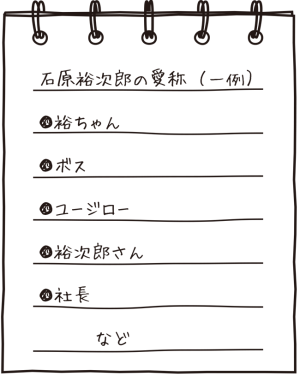 石原裕次郎の愛称（一例）
●裕ちゃん
●ボス
●ユージロー
●裕次郎さん
●社長
など